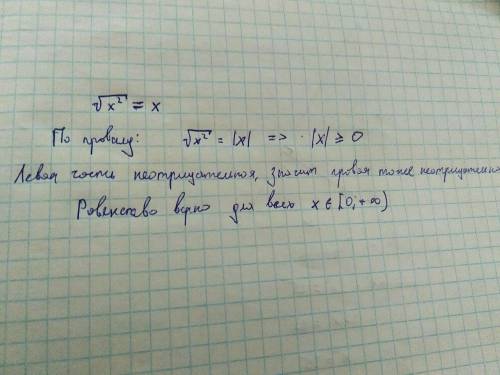 √x² = x
По правилу: √x² = |x| => |x| ≥ 0
Левая часть неотрицательная, значит правая тоже неотрицательна
Равенство верно для всех x ∈ [0; +∞)